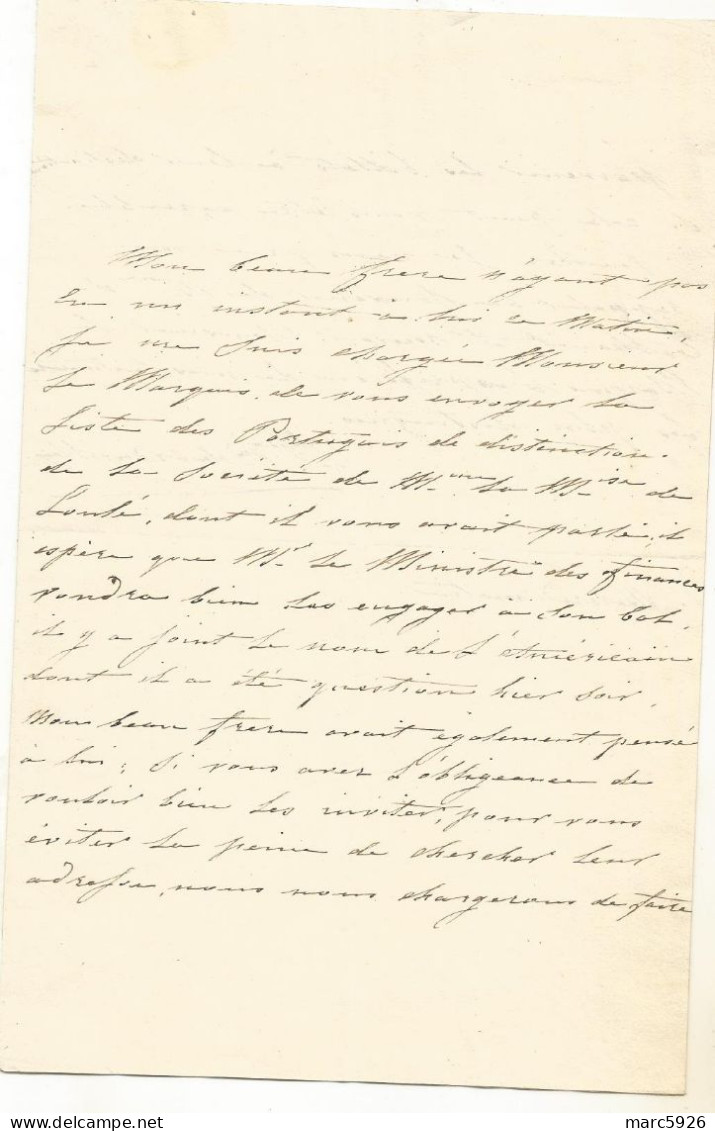 Mon beau frere n'ayant pas
eu un instant à lui ce matin,
je me suis chargée Monsieur
le Marquis, de vous envoyer la
liste des Portugais de distinction.
de la Société de Mme la Mise de
Loulé, dont il vous avait parlé, il
espère que Mr le Ministre des finances
voudra bien les engager à son bal,
il y a joint le nom de l'Américain
dont il a été question hier soir.
Mon beau frere avait également pensé
à lui; si vous avez l'obligeance de
vouloir bien les inviter, pour vous
éviter la peine de chercher leur
adresse, nous nous chargerons de faire
marc5926